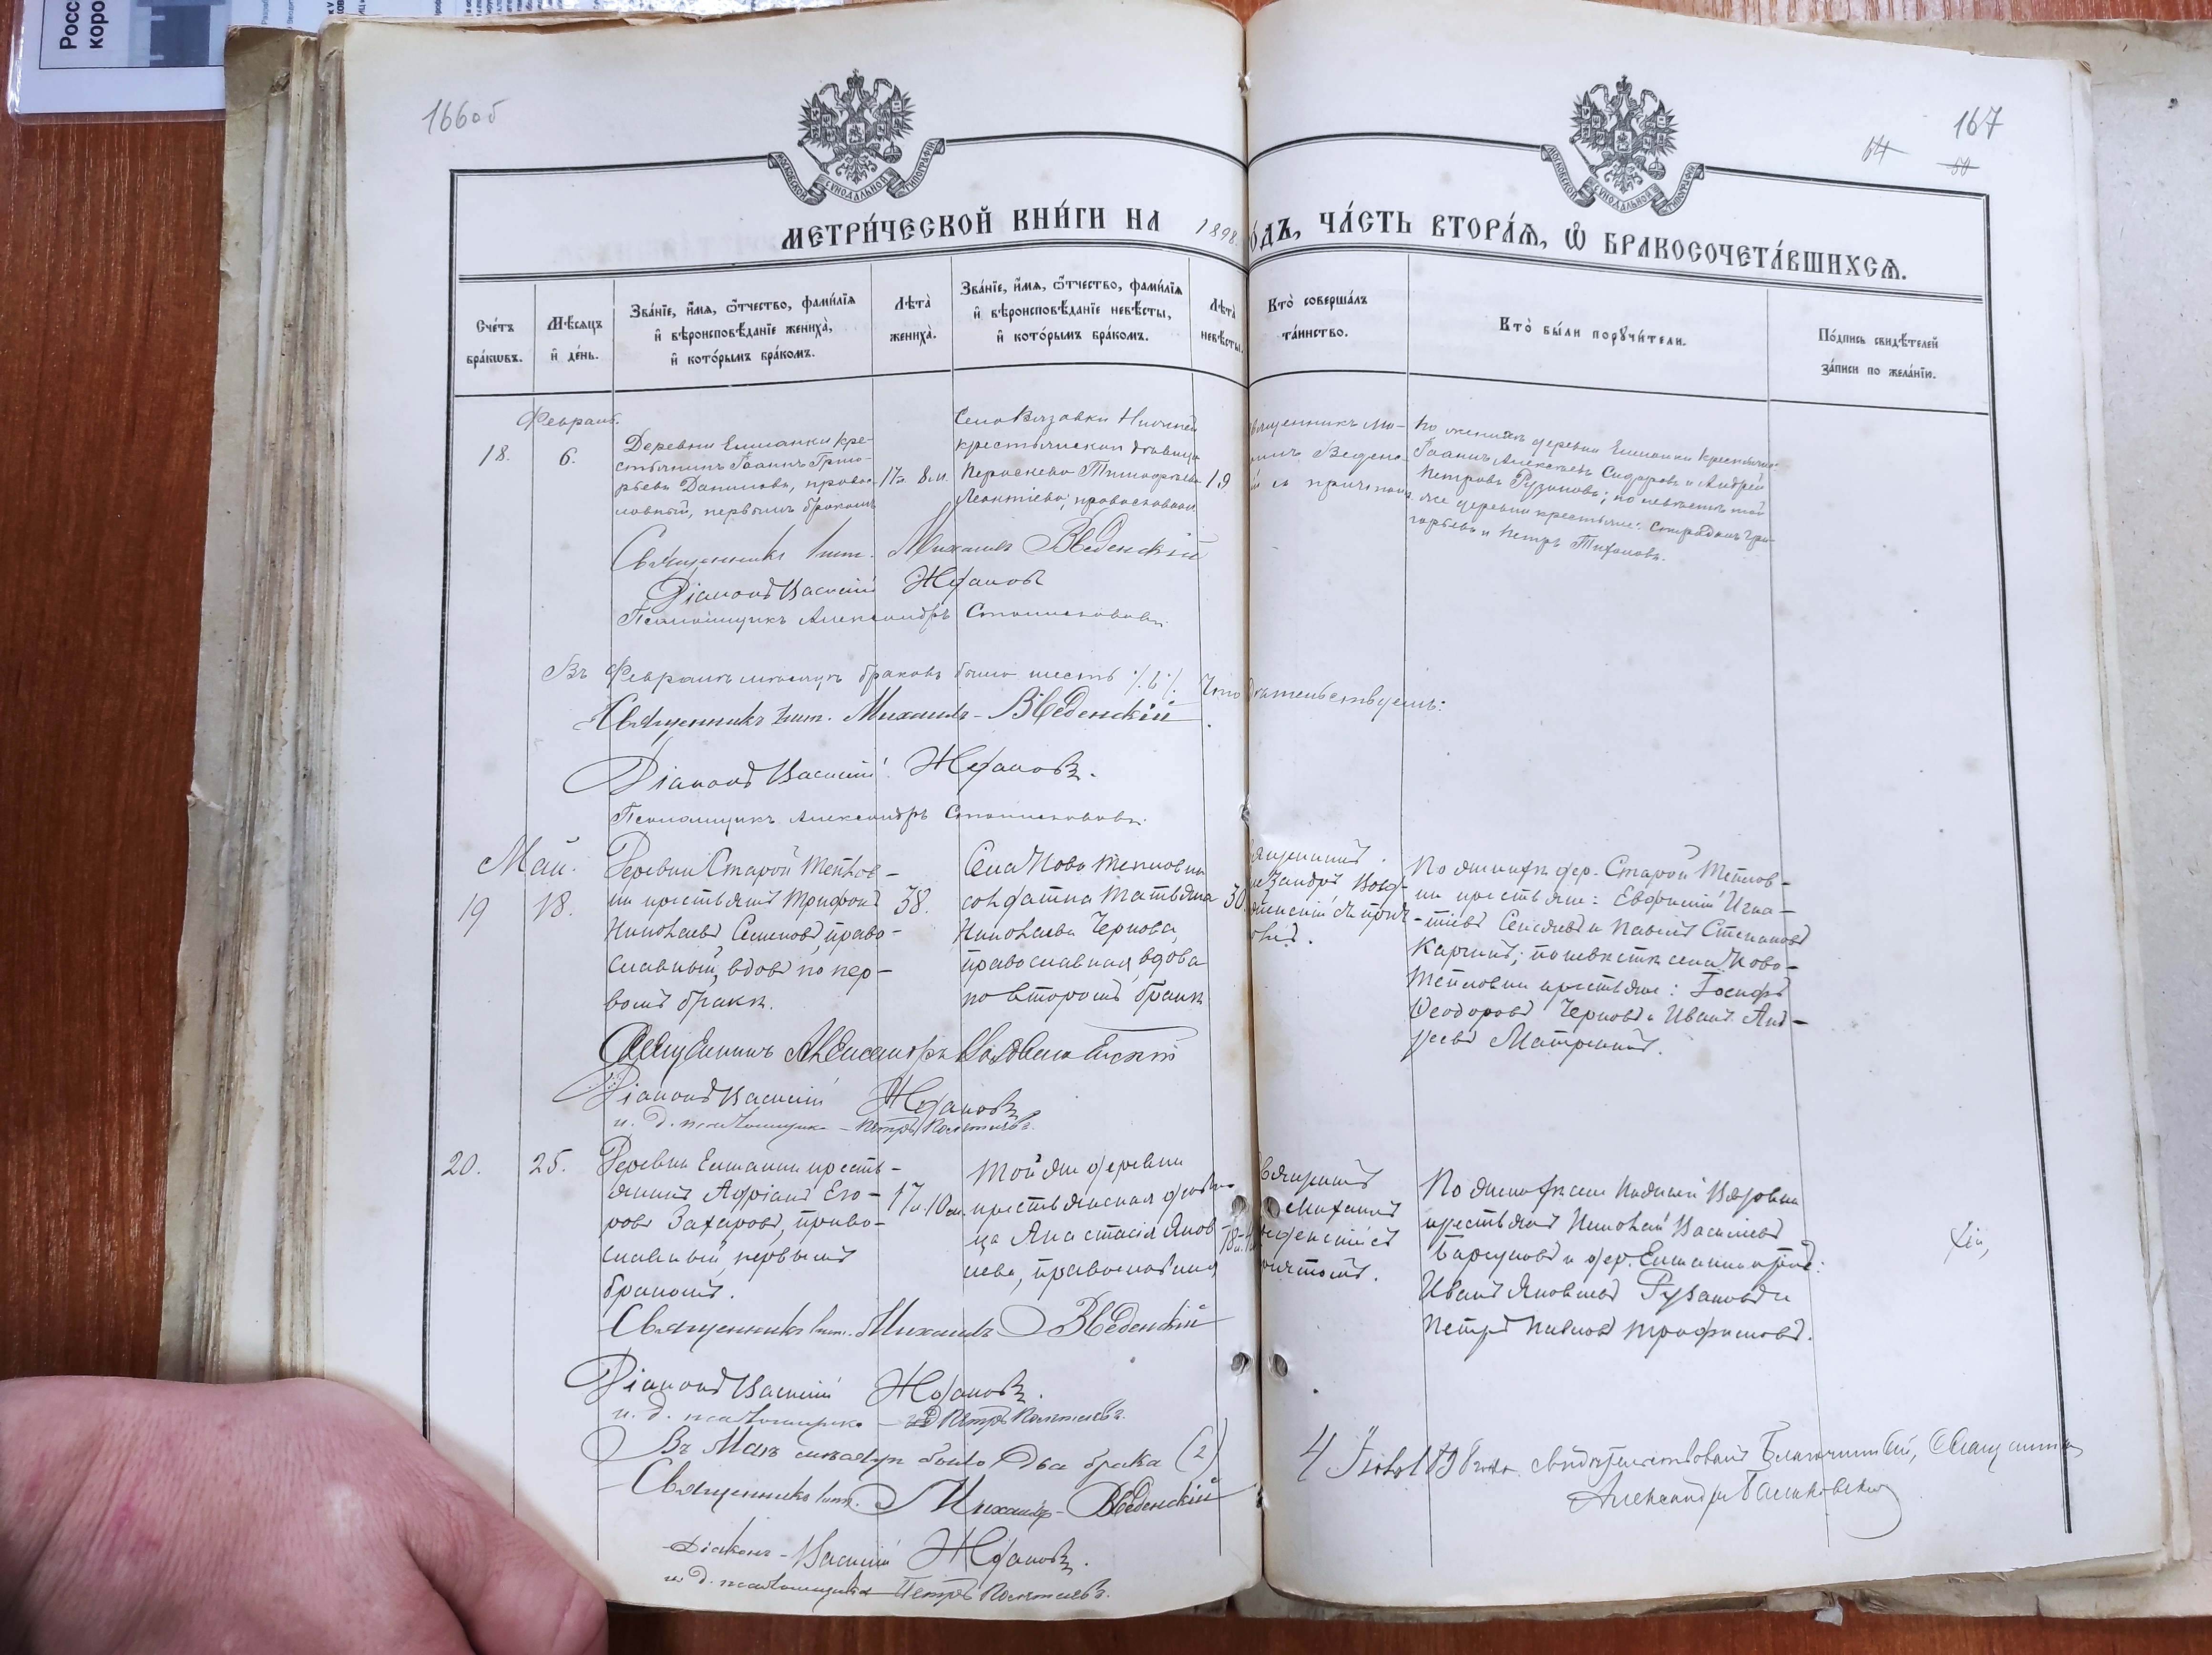 166об
167
64
60
МОСКОВСКОЙ СѴНОДАЛЬНОЙ ТИПОГРАФІИ
МОСКОВСКОЙ СѴНОДАЛЬНОЙ ТИПОГРАФІИ
МЕТРИ́ЧЕСКОЙ КНИ́ГИ НА 1898 ГО́ДЪ, ЧА́СТЬ ВТОРА́Я, Ѡ БРАКОСОЧЕТА́ВШИХСЯ.
Сче́тъ бра́кѡвъ.
Мѣ́сяцъ и де́нь.
Зва́нїе, и́мя, ѻ҆́тчество, фами́лїя и вѣроисповѣ́данїе жениха̀, и кото́рымъ бра́комъ.
Лѣта̀ жениха̀.
Зва́нїе, и́мя, ѻ҆́тчество, фами́лїя и вѣроисповѣ́данїе невѣ́сты, и кото́рымъ бра́комъ.
Лѣта̀ невѣ́сты.
Кто̀ соверша́лъ та́инство.
Кто̀ бы́ли порꙋчи́тели.
По́дпись свидѣ́телей за́писи по жела́нїю.
Февраль.
18.
6.
Деревни Елшанки кре-
стьянинъ Іоаннъ Григо-
рьевъ Даниловъ, правос-
лавный, первымъ бракомъ
17 л. 8 м.
Села Вязовки Нижней
крестьянская девица
Тимофеева
Леонтіева, православная
19
священникъ Ми-
хаилъ Веденс-
кій съ причтомъ
По женихе деревни Елшанки крестьяне:
Іоаннъ Алексеевъ Сидоровъ и Андрей
Петровъ Рузановъ; по невесте той
же деревни крестьяне: Спиридонъ Гри-
горьевъ и Петръ Тихоновъ.
Священникъ Михаилъ Введенскій
Діаконъ Василій Ждановъ
Псаломщикъ Александръ
Въ Феврале месяце браковъ было шесть ./.6./. Что свидетельствуемъ:
Священникъ Михаилъ Введенскій
Діаконъ Василій Ждановъ.
Псаломщикъ Александръ
Май.
19
18.
Деревни Старой Теплов-
ки крестьянинъ Трифонъ
Николаевъ Семеновъ, право-
славный, вдовъ по пер-
вомъ браке.
38.
Села Ново Тепловки
солдатка Татьяна
Николаева Чернова,
православная, вдова
по второмъ браке
30
Священникъ
Александръ Возд-
виженскій съ прич-
томъ.
По женихе дер. Старой Теплов-
ки крестьяне: Евфимій Игна-
тіевъ и Павелъ Степановъ
по невесте села Ново-
Тепловки крестьяне: Іосифъ
Ѳеодоровъ Черновъ и Иванъ Анд-
реевъ
Священникъ Александръ Воздвиженскій
Діаконъ Василій Ждановъ
и. д. псаломщика - Петръ
20.
25.
Деревни Елшанки кресть-
янинъ Адріанъ Его-
ровъ Захаровъ, право-
славный, первымъ
бракомъ.
17 л. 10 м.
Той же деревни
крестьянская деви-
ца Анастасія Яков-
лева, православная
18
Священникъ
Михаилъ
Введенскій съ
причтомъ.
По женихе села Нижней Вязовки
крестьяне Николай Васильевъ
и дер. Елшанки
Иванъ Яковлевъ Рузановъ и
Петръ Павловъ Трофимовъ.
Священникъ Михаилъ Введенскій
Діаконъ Василій Ждановъ.
и. д. псаломщика - Петръ
Въ Мае месяце было два брака (2)
Священникъ Михаилъ Введенскій
Діаконъ - Василій Ждановъ.
и. д. псаломщика Петръ
4 Іюня 1898 года свидетельствовалъ Благочинный, Священникъ
Александръ